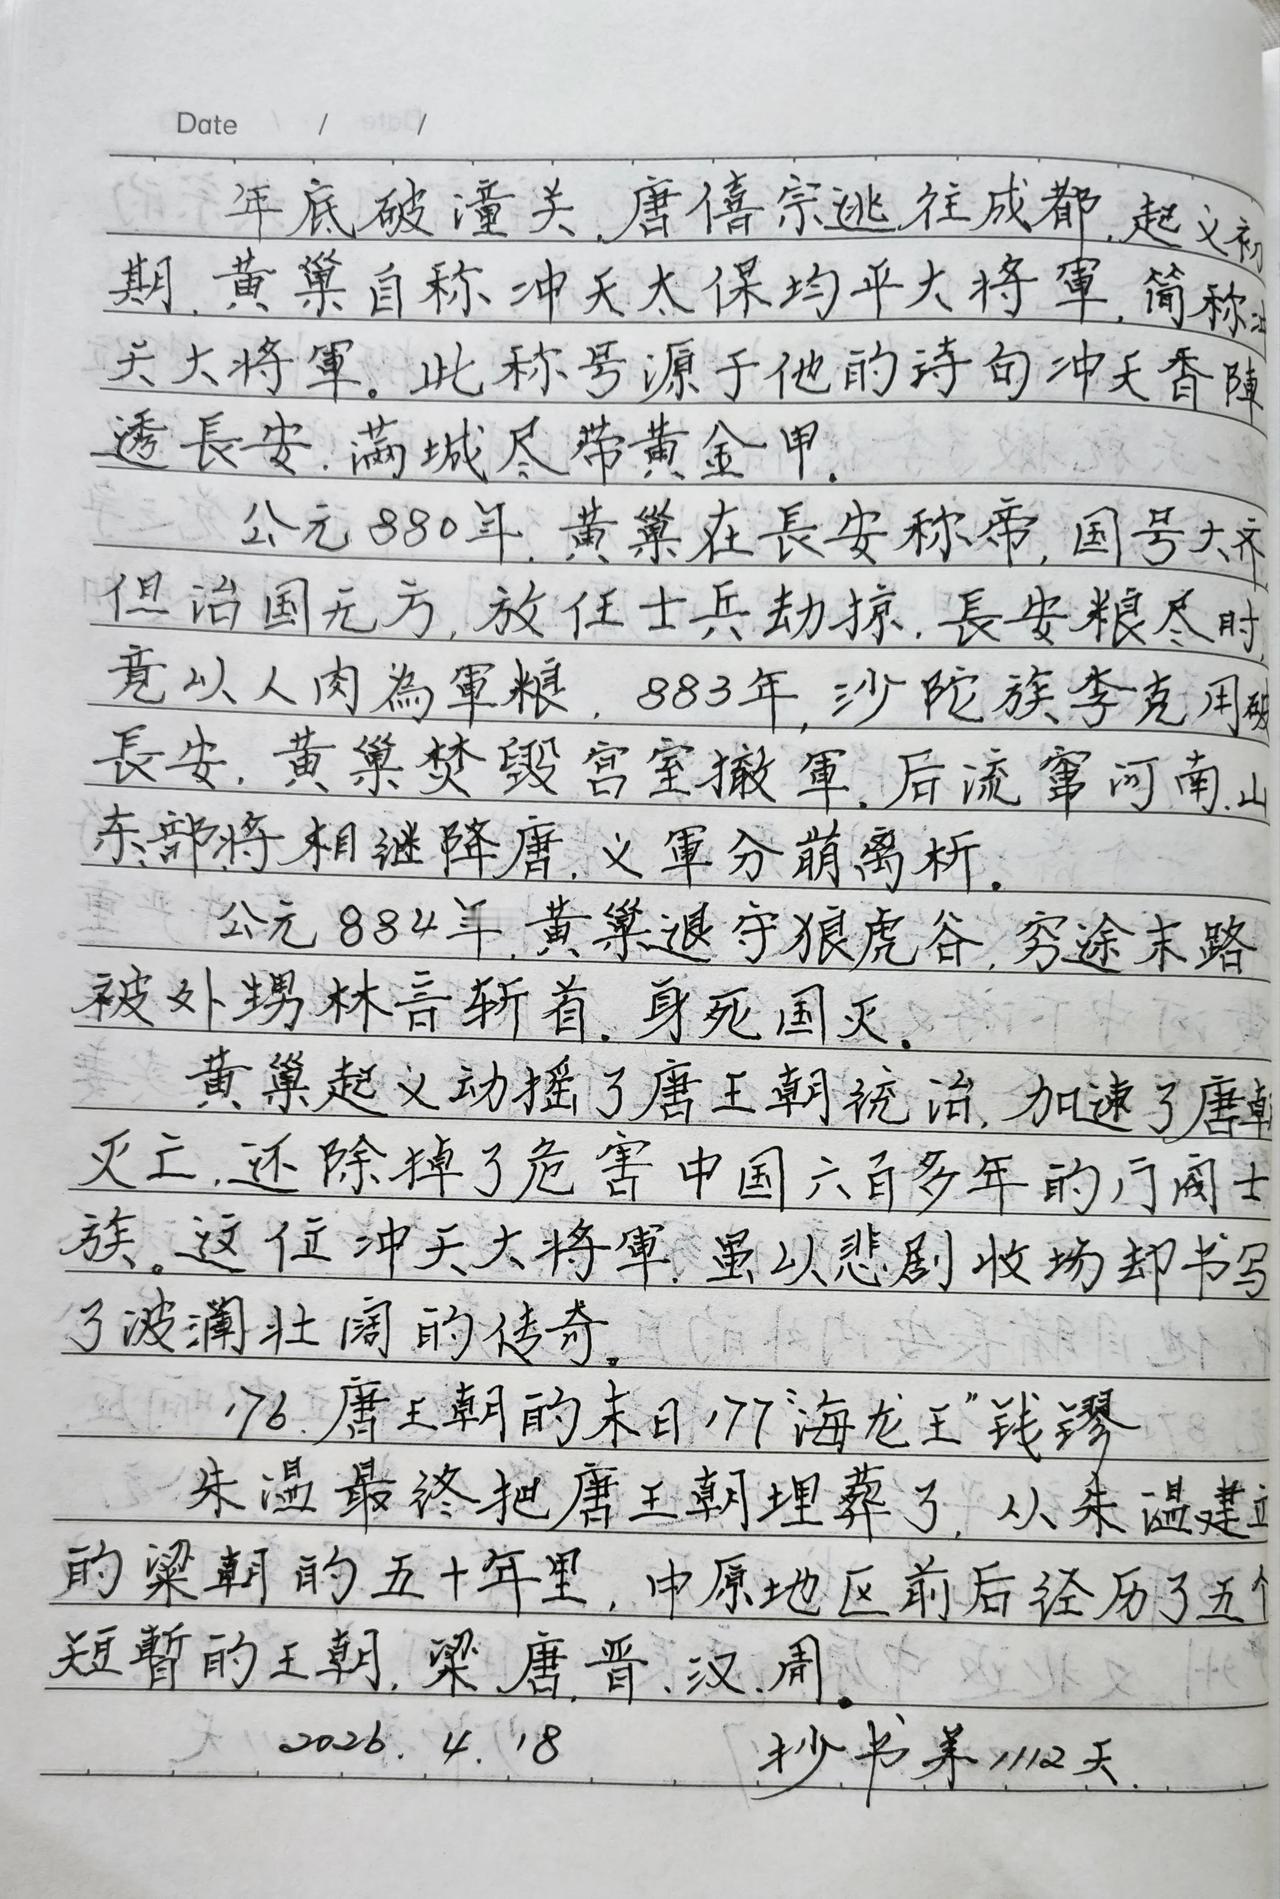 Date / /
年底破潼关,唐僖宗逃往成都,起义初
期,黄巢自称冲天太保均平大将軍,简称冲
天大将軍。此称号源于他的诗句冲天香陣
透長安,满城尽带黄金甲.
公元880年,黄巢在長安称帝,国号大齐
但治国无方,放任士兵劫掠,長安粮尽时,
竟以人肉為軍粮,883年,沙陀族李克用破
長安,黄巢焚毁宫室撤軍,后流窜河南.山
东,部将相继降唐,义軍分崩离析.
公元884年,黄巢退守狼虎谷,穷途末路
被外甥林言斩首,身死国灭.
黄巢起义动摇了唐王朝统治,加速了唐朝
灭亡,还除掉了危害中国六百多年的门阀士
族。这位冲天大将軍,虽以悲剧收场却书写
了波澜壮阔的传奇。
176.唐王朝的末日177"海龙王"钱镠
朱温最终把唐王朝埋葬了,从朱温建立
的梁朝的五十年里,中原地区前后经历了五个
短暫的王朝,梁.唐.晋.汉.周。
2026.4.18 抄书第1112天.